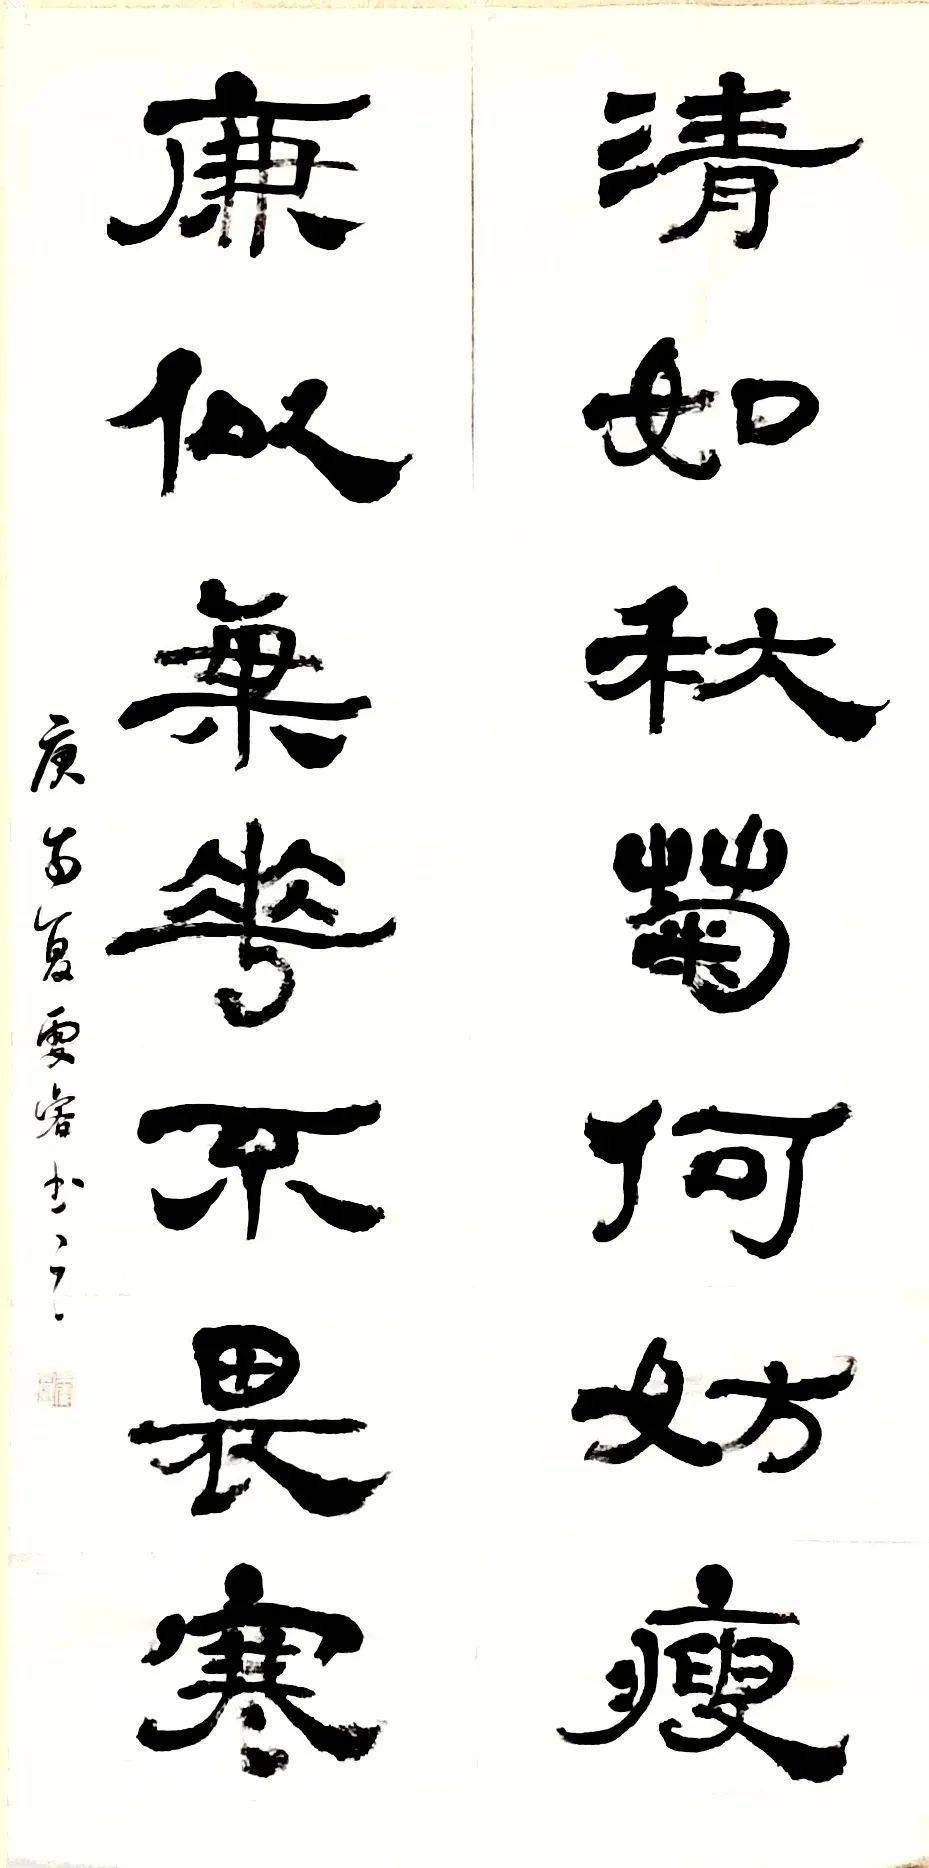 清如秋菊何妨瘦
廉似梅花不畏寒
庚 夏 书